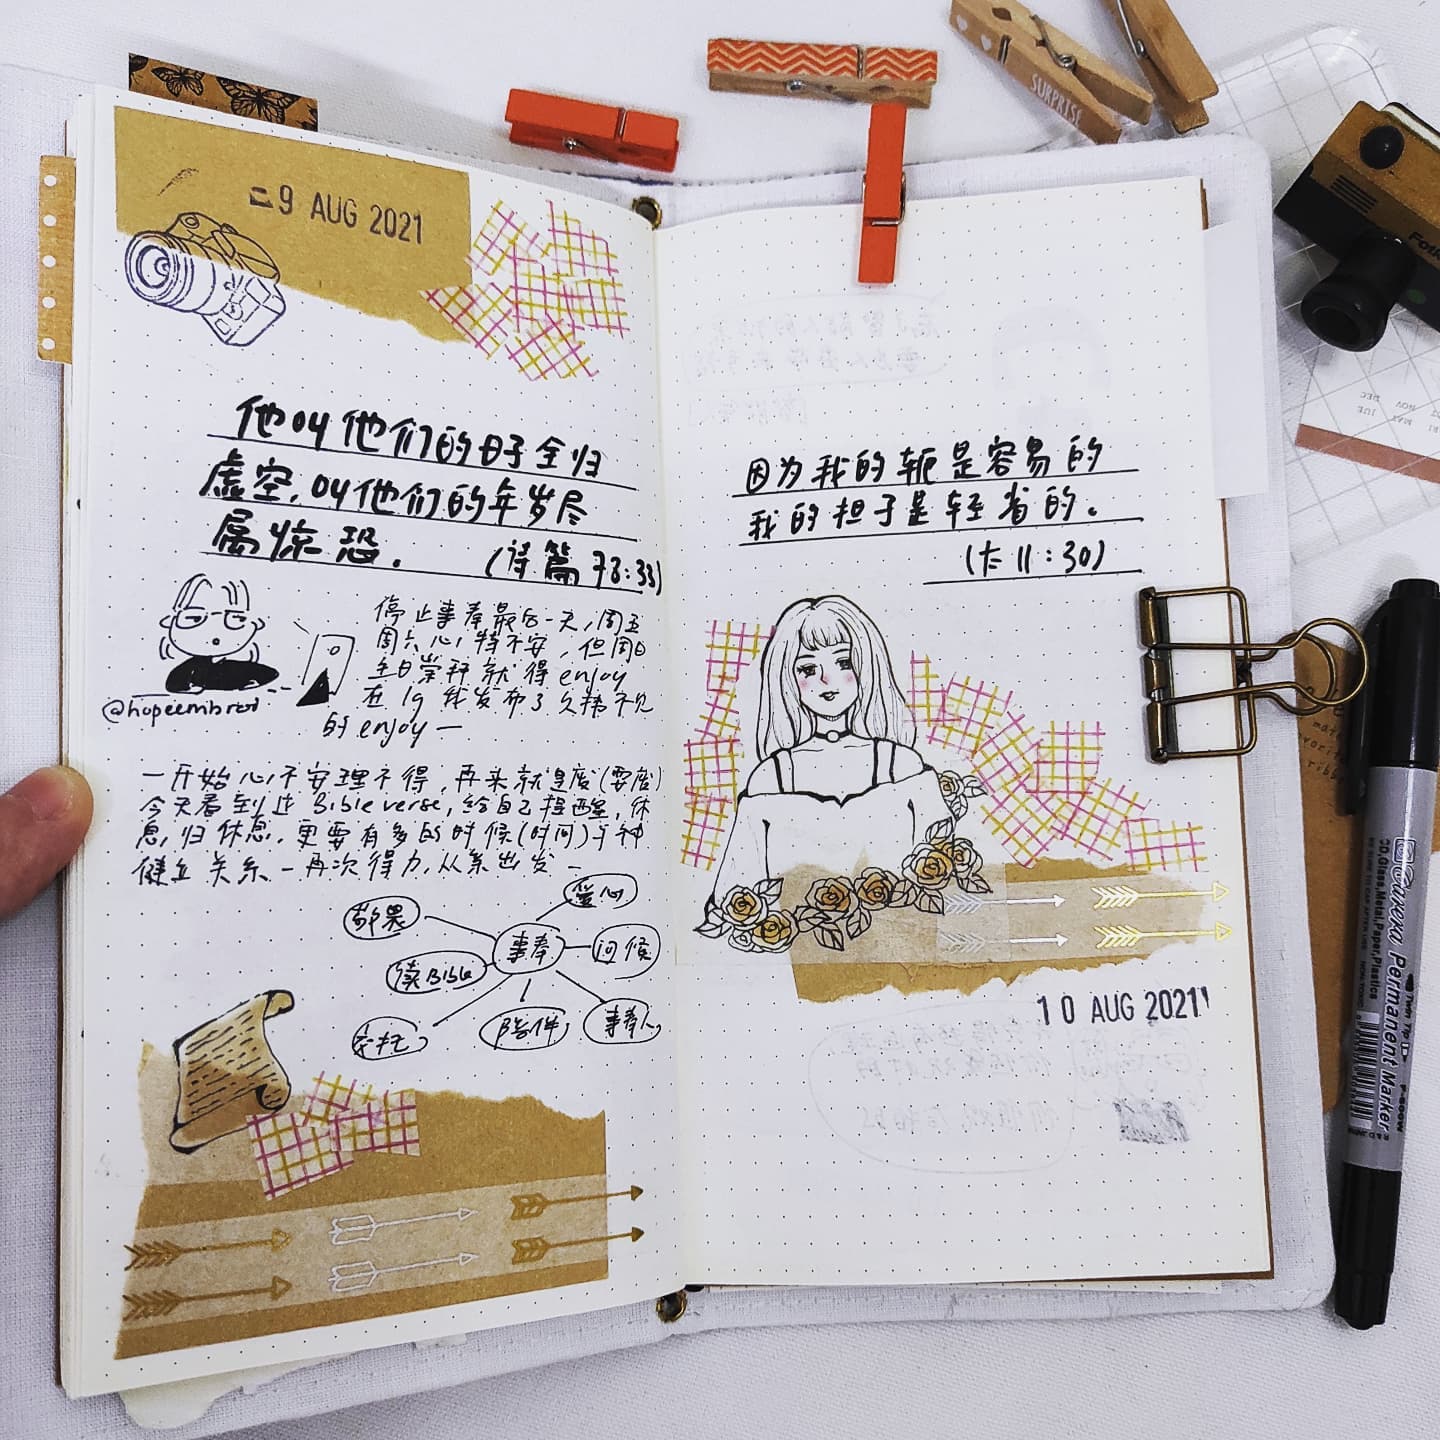 9 AUG 2021
他叫他们的日子全归
虚空,叫他们的年岁尽
属惊恐. (诗篇 78:33)
停止事奉最后一天,周五
周六心特不安,但周日
主日崇拜就得 enjoy
在 ig 我发布了久违不见
的 enjoy —
@hopeembret
一开始心不安理不得,再来就是废(要废)
今天看到这 Bible verse,给自己提醒,休
息,归休息,更要有多的时候(时间)与神
健立关系 - 再次得力,从系出发 -
爱心
敬果
事奉
问候
读 Bible
陪伴
事奉人
因为我的轭是容易的
我的担子是轻省的。
(太 11:30)
10 AUG 2021
SURPRISE
DEC
NOV
Permanent Marker
Twin Tip
CD,Glass,Metal,Paper,Plastics